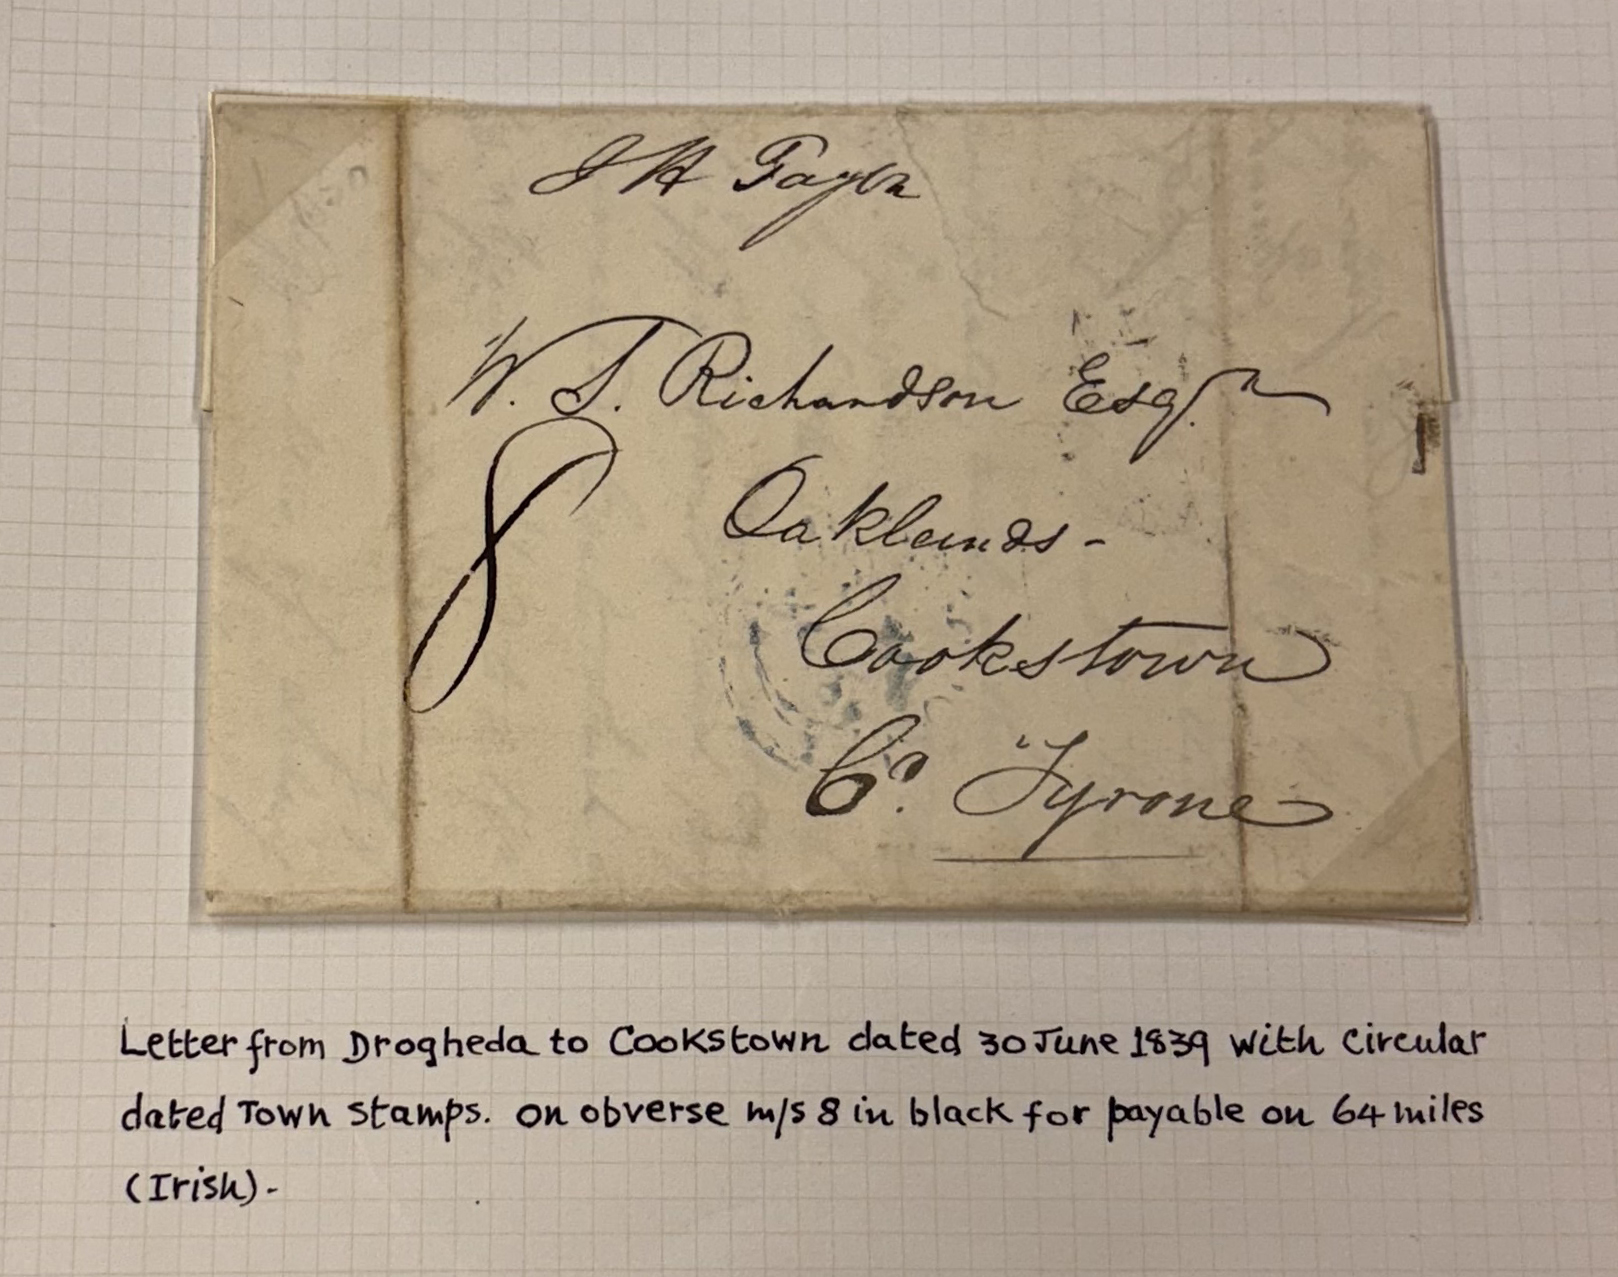 J H Taylor
W. S. Richardson Esqr
8
Oaklands -
Cookstown
Co. Tyrone
Letter from Drogheda to Cookstown dated 30 June 1839 with circular
dated Town stamps. on obverse m/s 8 in black for payable on 64 miles
(Irish).-